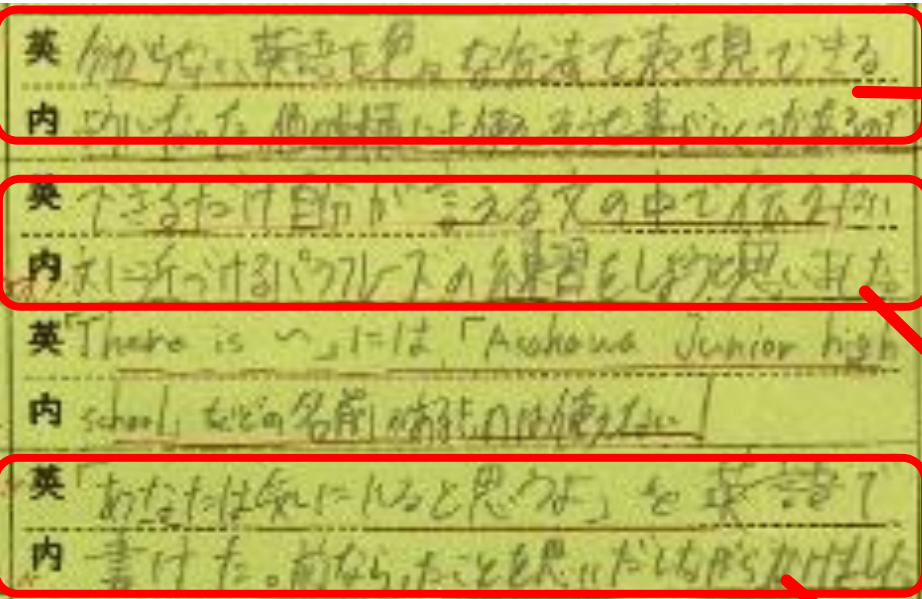 英 分からない英語を色々な方法で表現できる
内 ようになった。他の
英 できるだけ自分が言える文の中で伝えたい
内 文に近づけるパラフレーズの練習をしようと思いました
英 「There is ～」には、「Asakawa Junior high
内 school」などの名前がある ものは使えない
英 「あなたは気に入ると思うよ」を英語で
内 書けた。前ならったことを思いだしながらかけました